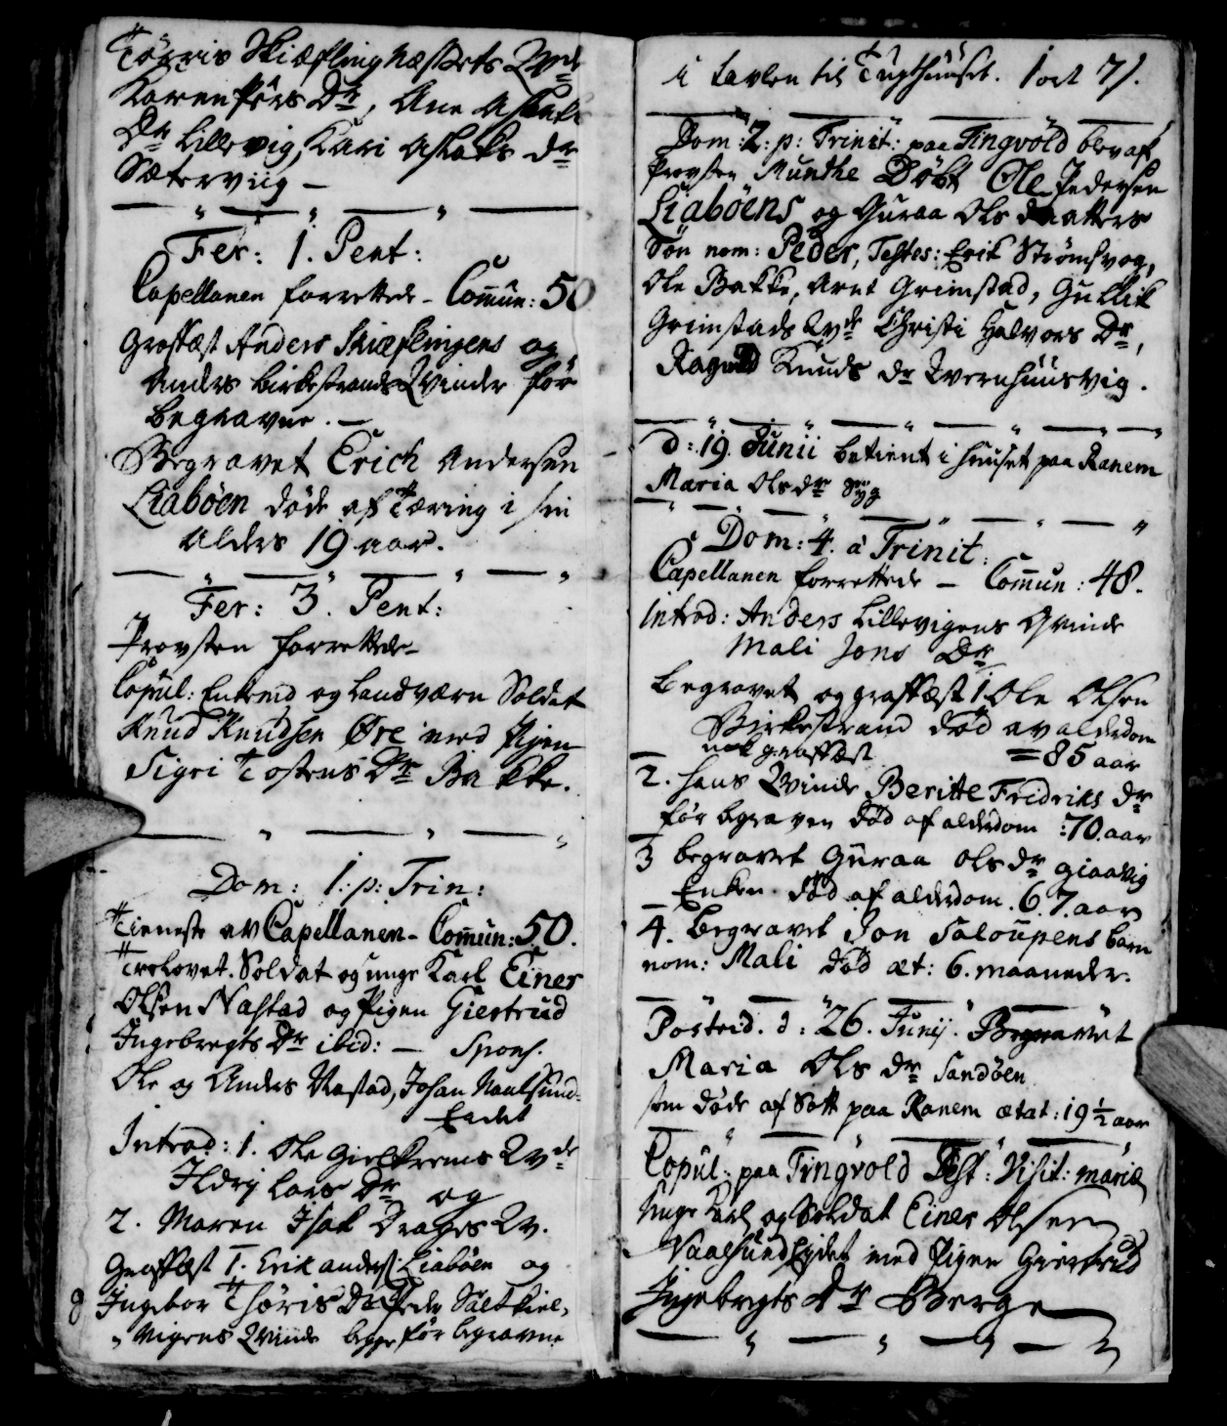 Törris Skiæfling Næssets Qvde
Karen Pers Dr, Ane Aslaks
Dr Lillevig, Kari Aslaks dr
Sæterviig –
Fer: 1. Pent:
Capellanen forrettede – Comun: 50
Graffæst Anders Skiæflingens og
Anders Birkestrands Qvinde før
begravne. –
Begravet Erich Andersen
Liabøen døde af Tæring i sin
Alders 19 aar.
Fer: 3. Pent:
Provsten forrettede
Copul: Enkemd og Landværn Soldat
Knud Knudsen Øre med Pigen
Sigri Tostens Dr Bakke.
Dom: 1: p: Trin:
Tieneste av Capellanen – Comun: 50.
Trolovet. Soldat og unge Karl Einer
Olsen Nastad og Pigen Giertrud
Ingebregts Dr ibid: – Spons.
Ole og Anders Nastad, Johan Naalsund
Eidet
Introd: 1. Ole Gielkrems Qvde
Ildrj Lars Dr og
2. Maren Isak Drages Qv.
Graffæst 1. Erik anders Liabøen og
Ingebor Thöris Dr Peder Saltkiel-
vigens Qvinde begge før begravne
i Tavlen til Tugthuuset. 1 ort 7 s.
Dom: 2: p: Trinit: paa Tingvold blev af
Provsten Munthe Døbt Ole Pedersen
Liabøens og Guraa Ols daatters
Søn nom: Peder, Testes: Erik Strømsvog,
Ole Bakke, Arnt Grimstad, Gullik
Grimstads Qvde Christi Halvors Dr,
Ragnild Knuds dr Qvernhuusvig.
d: 19. Junii betient i Huuset paa Ranem
Maria Olsdr syg
Dom: 4. a Trinit:
Capellanen forrettede – Comun: 48.
Introd: Anders Lillevigens Qvinde
Mali Jons Dr
Begravet og graffæst 1. Ole Olsen
Birkestrand død av alderdom
nek graffæst = 85 aar
2. hans Qvinde Beritte Fridriks dr
før begraven død af alderdom : 70. aar
3 begravet Guraa Olsdr Giaavig
Enken. død af alderdom. 67. aar
4. Begravet Jon Saloupens barn
nom: Mali død æt: 6. maaneder.
Postrid. d: 26. Junij. Begravet
Maria Ols dr Sandøen
som døde af Sott paa Ranem ætat: 19 1/2 aar
Copul: paa Tingvold Fest: Visit: mariæ
Unge Karl og Soldat Einer Olsen
Naalsund Eydet med Pigen Giertrud
Ingebregts dr Berge